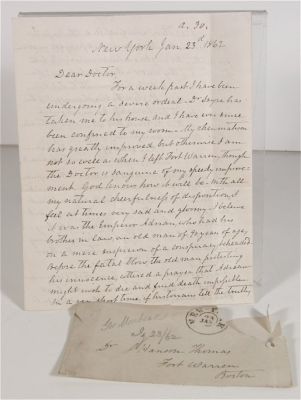 a. 30.
New York Jan. 23d 1862
Dear Doctor,
For a week past I have been
undergoing a severe ordeal. Dr Sayre has
taken me to his house, and I have ever since
been confined to my room. My rheumatism
has greatly improved but otherwise I am
not so well as when I left Fort Warren, though
the Doctor is sanguine of my speedy improve-
ment. God knows how it will be. With all
my natural cheerfulness of disposition, I
feel at times very sad and gloomy. I believe
it was the Emperor Adrian, who had his
brother in law, an old man of 90 years of age,
on a mere suspicion of a conspiracy beheaded.
Before the fatal blow the old man protesting
his innocence, uttered a prayer that Adrian
might wish to die and find death impossible.
In a very short time if historians tell the truth,
Jany 23/62
Dr J Hanson Thomas
Fort Warren
Boston